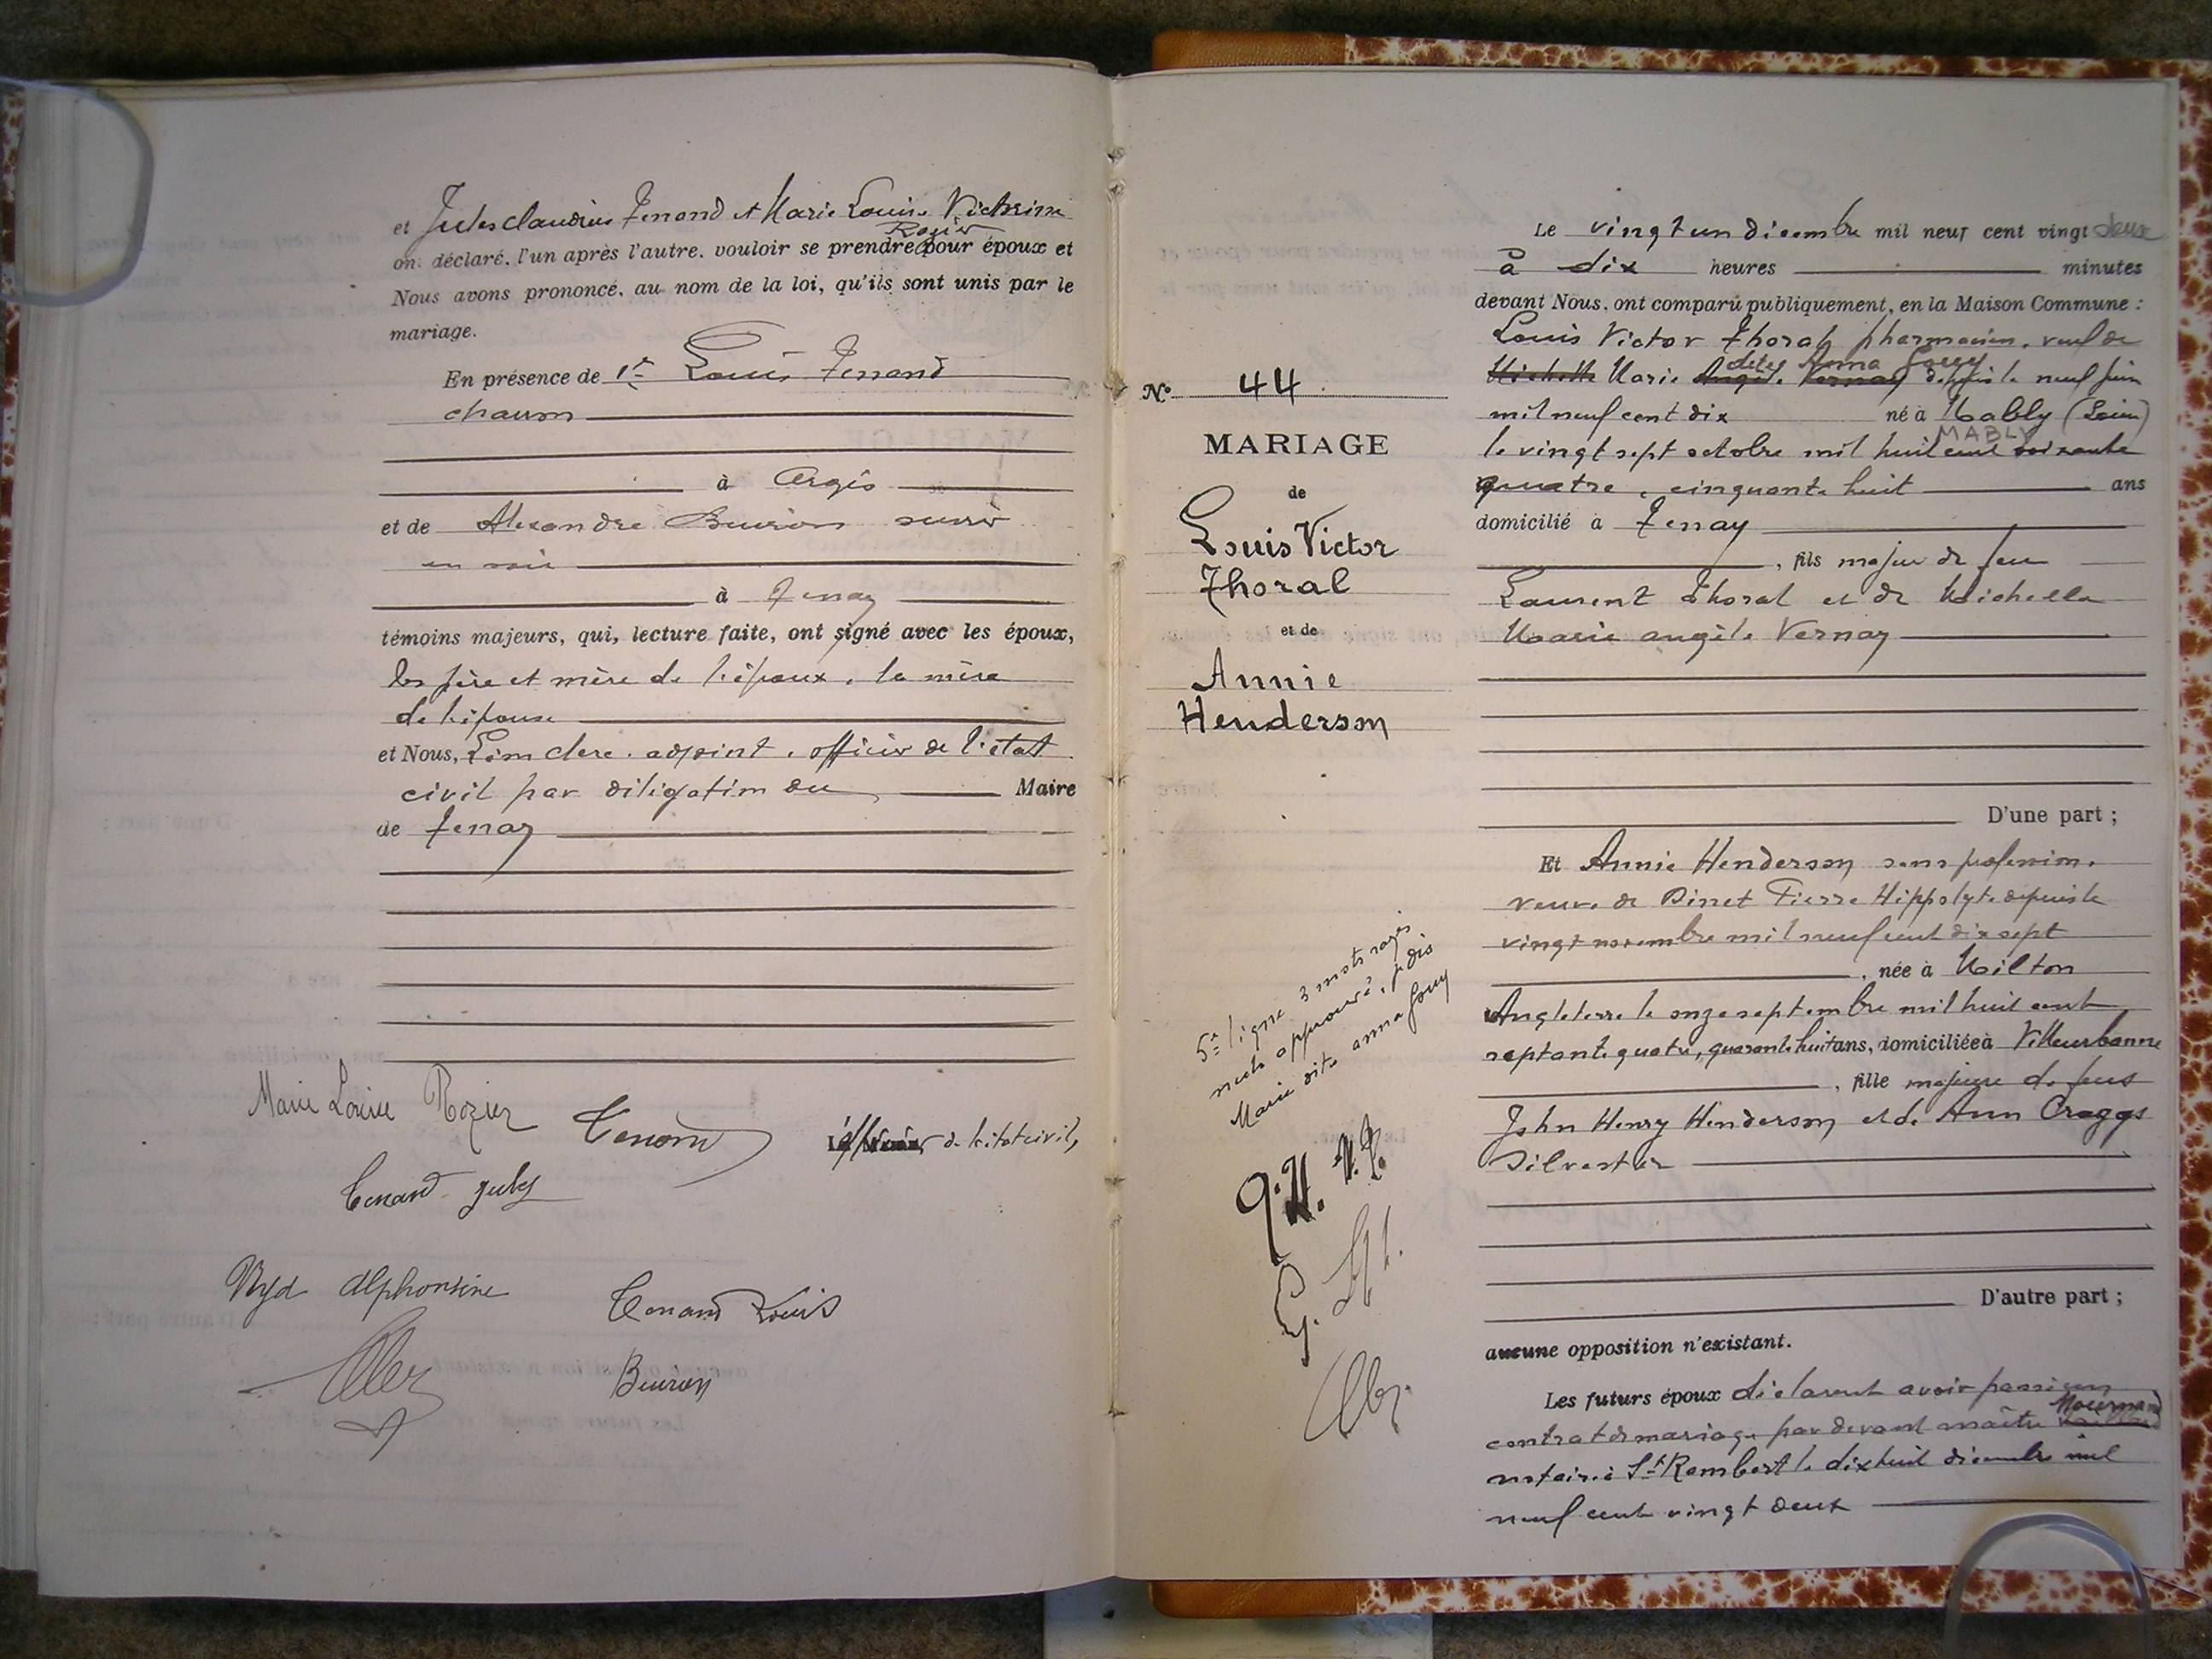 et Jules claudius Tenand et Marie Louise Victorine
Rozier
ont déclaré, l'un après l'autre, vouloir se prendre pour époux et
Nous avons prononcé, au nom de la loi, qu'ils sont unis par le
mariage.
En présence de 1º Louis Tenand
charron
à Argis
et de Alexandre Beuvion
à Tenay
témoins majeurs, qui, lecture faite, ont signé avec les époux,
les père et mère de l'époux, la mère
de l'épouse
et Nous, adjoint, officier de l'état
civil par déligation du Maire
de Tenay
Marie Louise Rozier Tenand
de l'état civil,
Tenand Jules
Alphonsine
Tenand Louis
Nº 44
MARIAGE
de
Louis Victor
Thoral
et de
Annie
Henderson
5e ligne 3 mots rayés
nuls approuvé, je dis
Marie dite anna Gouy
Le vingt un décembre mil neuf cent vingt deux
à dix heures minutes
devant Nous, ont comparu publiquement, en la Maison Commune :
Louis Victor Thoral pharmacien, veuf de
dite Anna Gouy
Michelle Marie Angèle Vernay depuis le neuf juin
mil neuf cent dix né à Mably (Loire)
MABLY
le vingt sept octobre mil huit cent soixante
quatre, cinquante huit ans
domicilié à Tenay
, fils majeur de feu
Laurent Thoral et de Michelle
Marie angèle Vernay
D'une part ;
Et Annie Henderson sans profession,
veuve de Dinet Pierre Hippolyte depuis le
vingt novembre mil neuf cent dix sept
, née à Milton
Angleterre le onze septembre mil huit cent
septante quatre, quarante huit ans, domiciliée à Villeurbanne
, fille majeure de feus
John Henry Henderson et de Ann Craggs
Silvester
D'autre part ;
aucune opposition n'existant.
Les futurs époux déclarent avoir passé un
contrat de mariage par devant maître
notaire à St Rambert le dix huit décembre mil
neuf cent vingt deux